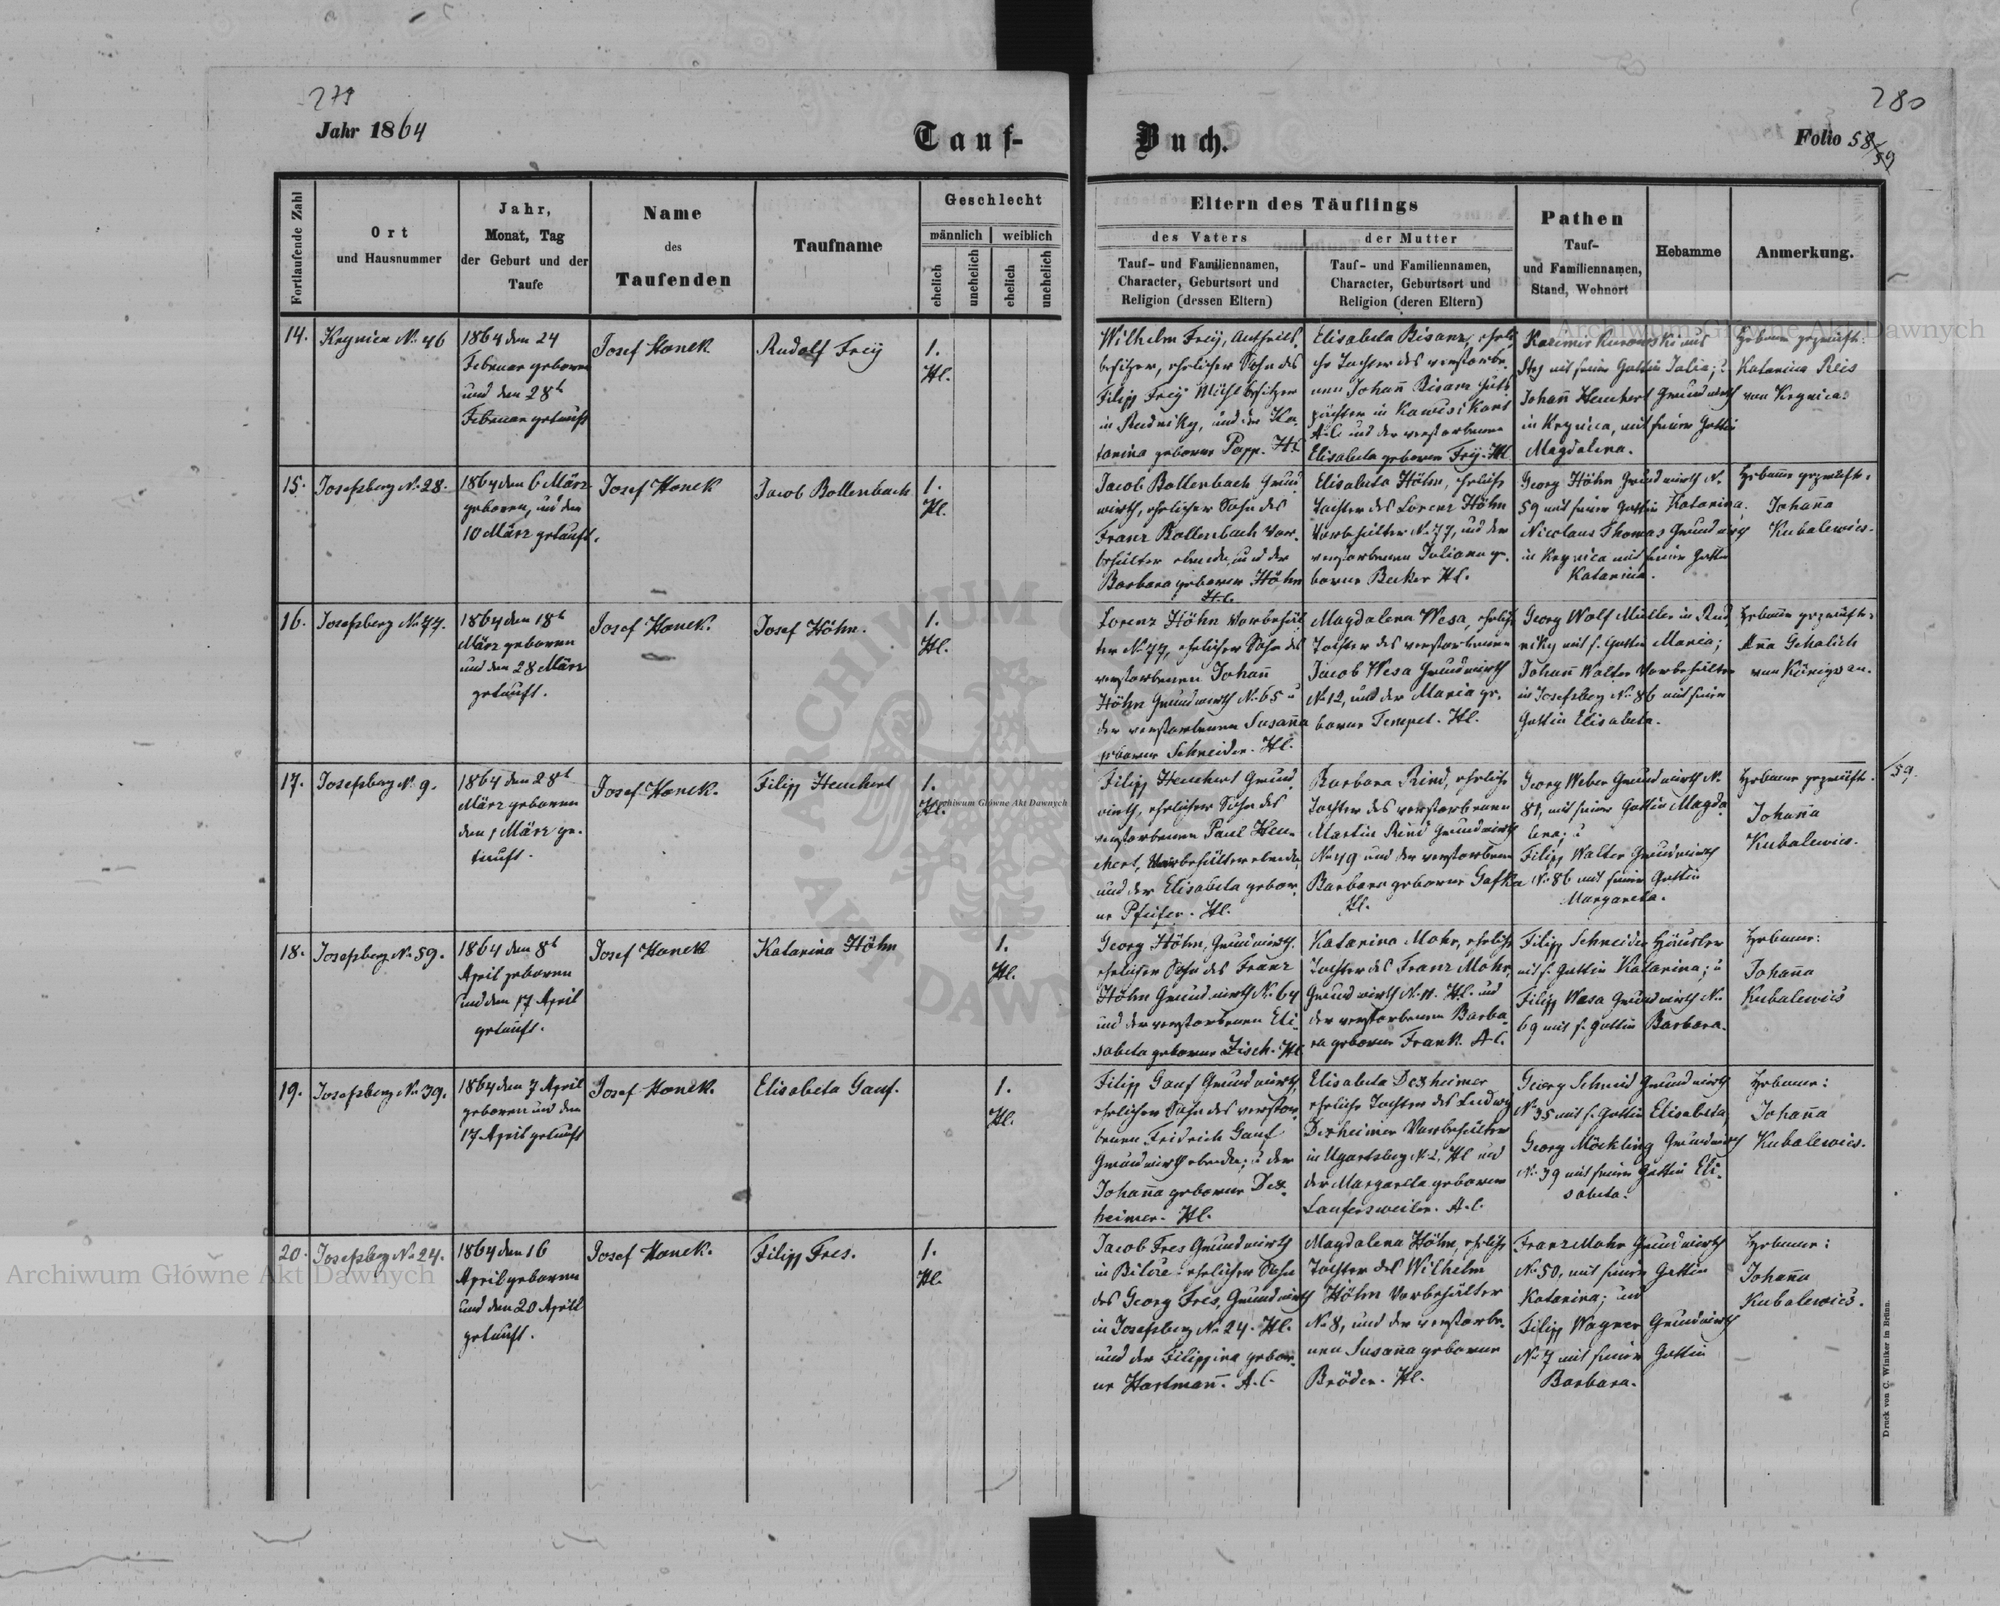 279
280
Jahr 1864
Tauf-
Buch.
Folio 58/59
Fortlaufende Zahl
Ort
und Hausnummer
Jahr,
Monat, Tag
der Geburt und der
Taufe
Name
des
Taufenden
Taufname
Geschlecht
männlich
weiblich
ehelich
unehelich
ehelich
unehelich
Eltern des Täuflings
des Vaters
der Mutter
Tauf- und Familiennamen,
Character, Geburtsort und
Religion (dessen Eltern)
Tauf- und Familiennamen,
Character, Geburtsort und
Religion (deren Eltern)
Pathen
Tauf-
und Familiennamen,
Stand, Wohnort
Hebamme
Anmerkung.
14.
Krynica No 46
1864 den 24
Februar geboren
und den 28t
Februar getauft
Josef Hanek
Rudolf Freÿ
1.
Hl.
Wilhelm Freÿ, Antheils-
besitzer, ehelicher Sohn des
Filipp Freÿ Mühlbesitzer
in Rudniky, und der Ka-
tarina geborne Popp. Hl
Elisabeta Bisanz, ehli-
che Tochter des verstorbe-
nen Johann̄ Bisanz Guts-
pächter in
A.C. und der verstorbenen
Elisabeta geborne Freÿ. Hl
Kazimir Kurowski aus
mit seiner Gattin Julia;
Johann̄ Heuchert Grundwirth
in Krynica, mit seiner Gattin
Magdalena.
Hebame geprüfte:
Katarina Reis
von Krynica.
15.
Josefsberg No 28.
1864 den 6 März
geboren, und den
10 März getauft.
Josef Hanek
Jacob Bollenbach
1.
Hl.
Jacob Bollenbach Grund-
wirth, ehelicher Sohn des
Franz Bollenbach Vor-
behälter ebenda, und der
Barbara geborner Höhn
Hl.
Elisabeta Höhn, eheliche
Tochter des Lorenz Höhn
Vorbehälter No 77, und der
verstorbenen Juliana ge-
borne Becker Hl.
Georg Höhn Grundwirth No
59 mit seiner Gattin Katarina,
Nicolaus Thomas Grundwirth
in Krynica mit seiner Gattin
Katarina.
Hebam̄e geprüfte:
Johan̄a
Kubalewics.
16.
Josefsberg No 77.
1864 den 18t
März geboren
und den 28 März
getauft.
Josef Hanek.
Josef Höhn.
1.
Hl.
Lorenz Höhn Vorbehäl-
ter No 77, ehelicher Sohn des
verstorbenen Johann̄
Höhn Grundwirth No 65 u
der verstorbenen Susan̄a
geborne Schneider. Hl.
Magdalena Wesa, eheliche
Tochter des verstorbenen
Jacob Wesa Grundwirth
No 12, und der Maria ge-
borne Tempel. Hl.
Georg Wolf Müller in Rud-
niky mit s. Gattin Maria;
Johan̄ Walter Vorbehälter
in Josefsberg No 86 mit seiner
Gattin Elisabeta.
Hebam̄e geprüfte:
An̄a Gehalich
von Königsau.
17.
Josefsberg No 9.
1864 den 28t
März geboren
den 1 März ge-
tauft.
Josef Hanek.
Filipp Heuchert
1.
Hl.
Filipp Heuchert Grund-
wirth, ehelicher Sohn des
verstorbenen Paul Heu-
chert, Vorbehälter ebenda,
und der Elisabeta gebor-
ne Pfeifer. Hl.
Barbara Rind, eheliche
Tochter des verstorbenen
Martin Rind Grundwirth
No 49 und der verstorbenen
Barbara geborne Gafka
Hl.
Georg Weber Grundwirth No
81, mit seiner Gattin Magda-
lena; u
Filipp Walter Grundwirth
No 86 mit seiner Gattin
Margareta.
Hebame geprüfte.
Johan̄a
Kubalewics.
/59.
18.
Josefsberg No 59.
1864 den 8t
April geboren
und den 17 April
getauft.
Josef Hanek
Katarina Höhn
1.
Hl.
Georg Höhn, Grundwirth.
ehelicher Sohn des Franz
Höhn Grundwirth No 64
und der verstorbenen Eli-
sabeta geborne Zisch. Hl
Katarina Mohr, eheliche
Tochter des Franz Mohr,
Grundwirth No 11. Hl. und
der verstorbenen Barba-
ra geborne Frank. A.C.
Filipp Schneider Häusler
mit s. Gattin Katarina; u
Filipp Wesa Grundwirth No
69 mit s. Gattin Barbara.
Hebame:
Johan̄a
Kubalewics
19.
Josefsberg No 39.
1864 den 7 April
geboren und den
17 April getauft
Josef Hanek.
Elisabeta Gauf.
1.
Hl.
Filipp Gauf Grundwirth,
ehelicher Sohn des verstor-
benen Fridrich Gauf
Grundwirth ebenda; u der
Johan̄a geborne Dex-
heimer. Hl.
Elisabeta Dexheimer
eheliche Tochter des Ludwig
Dexheimer Vorbehälter
in Ugartsberg No 2, Hl und
der Margareta geborne
Laufersweiler. A.C.
Georg Schmid Grundwirth
No 35 mit s. Gattin Elisabeta,
Georg Möckling Grundwirth
No 39 mit seiner Gattin Eli-
sabeta.
Hebame:
Johan̄a
Kubalewics.
20.
Josefsberg No 24.
1864 den 16
April geboren
und den 20 April
getauft.
Josef Hanek.
Filipp Fres.
1.
Hl.
Jacob Fres Grundwirth
in Bilcze ehelicher Sohn
des Georg Fres, Grundwirth
in Josefsberg No 24. Hl.
und der Filippina gebor-
ne Hartman̄. A.C.
Magdalena Höhn, eheliche
Tochter des Wilhelm
Höhn Vorbehälter
No 8, und der verstorbe-
nen Susan̄a geborne
Bröder. Hl.
Franz Mohr Grundwirth
No 50, mit seiner Gattin
Katarina; und
Filipp Wagner Grundwirth
No 7 mit seiner Gattin
Barbara.
Hebame:
Johan̄a
Kubalewics.
Druck von C. Winiker in Brünn.
Archiwum Główne Akt Dawnych
Archiwum Główne Akt Dawnych
Archiwum Główne Akt Dawnych
ARCHIWUM
AKT DAWN